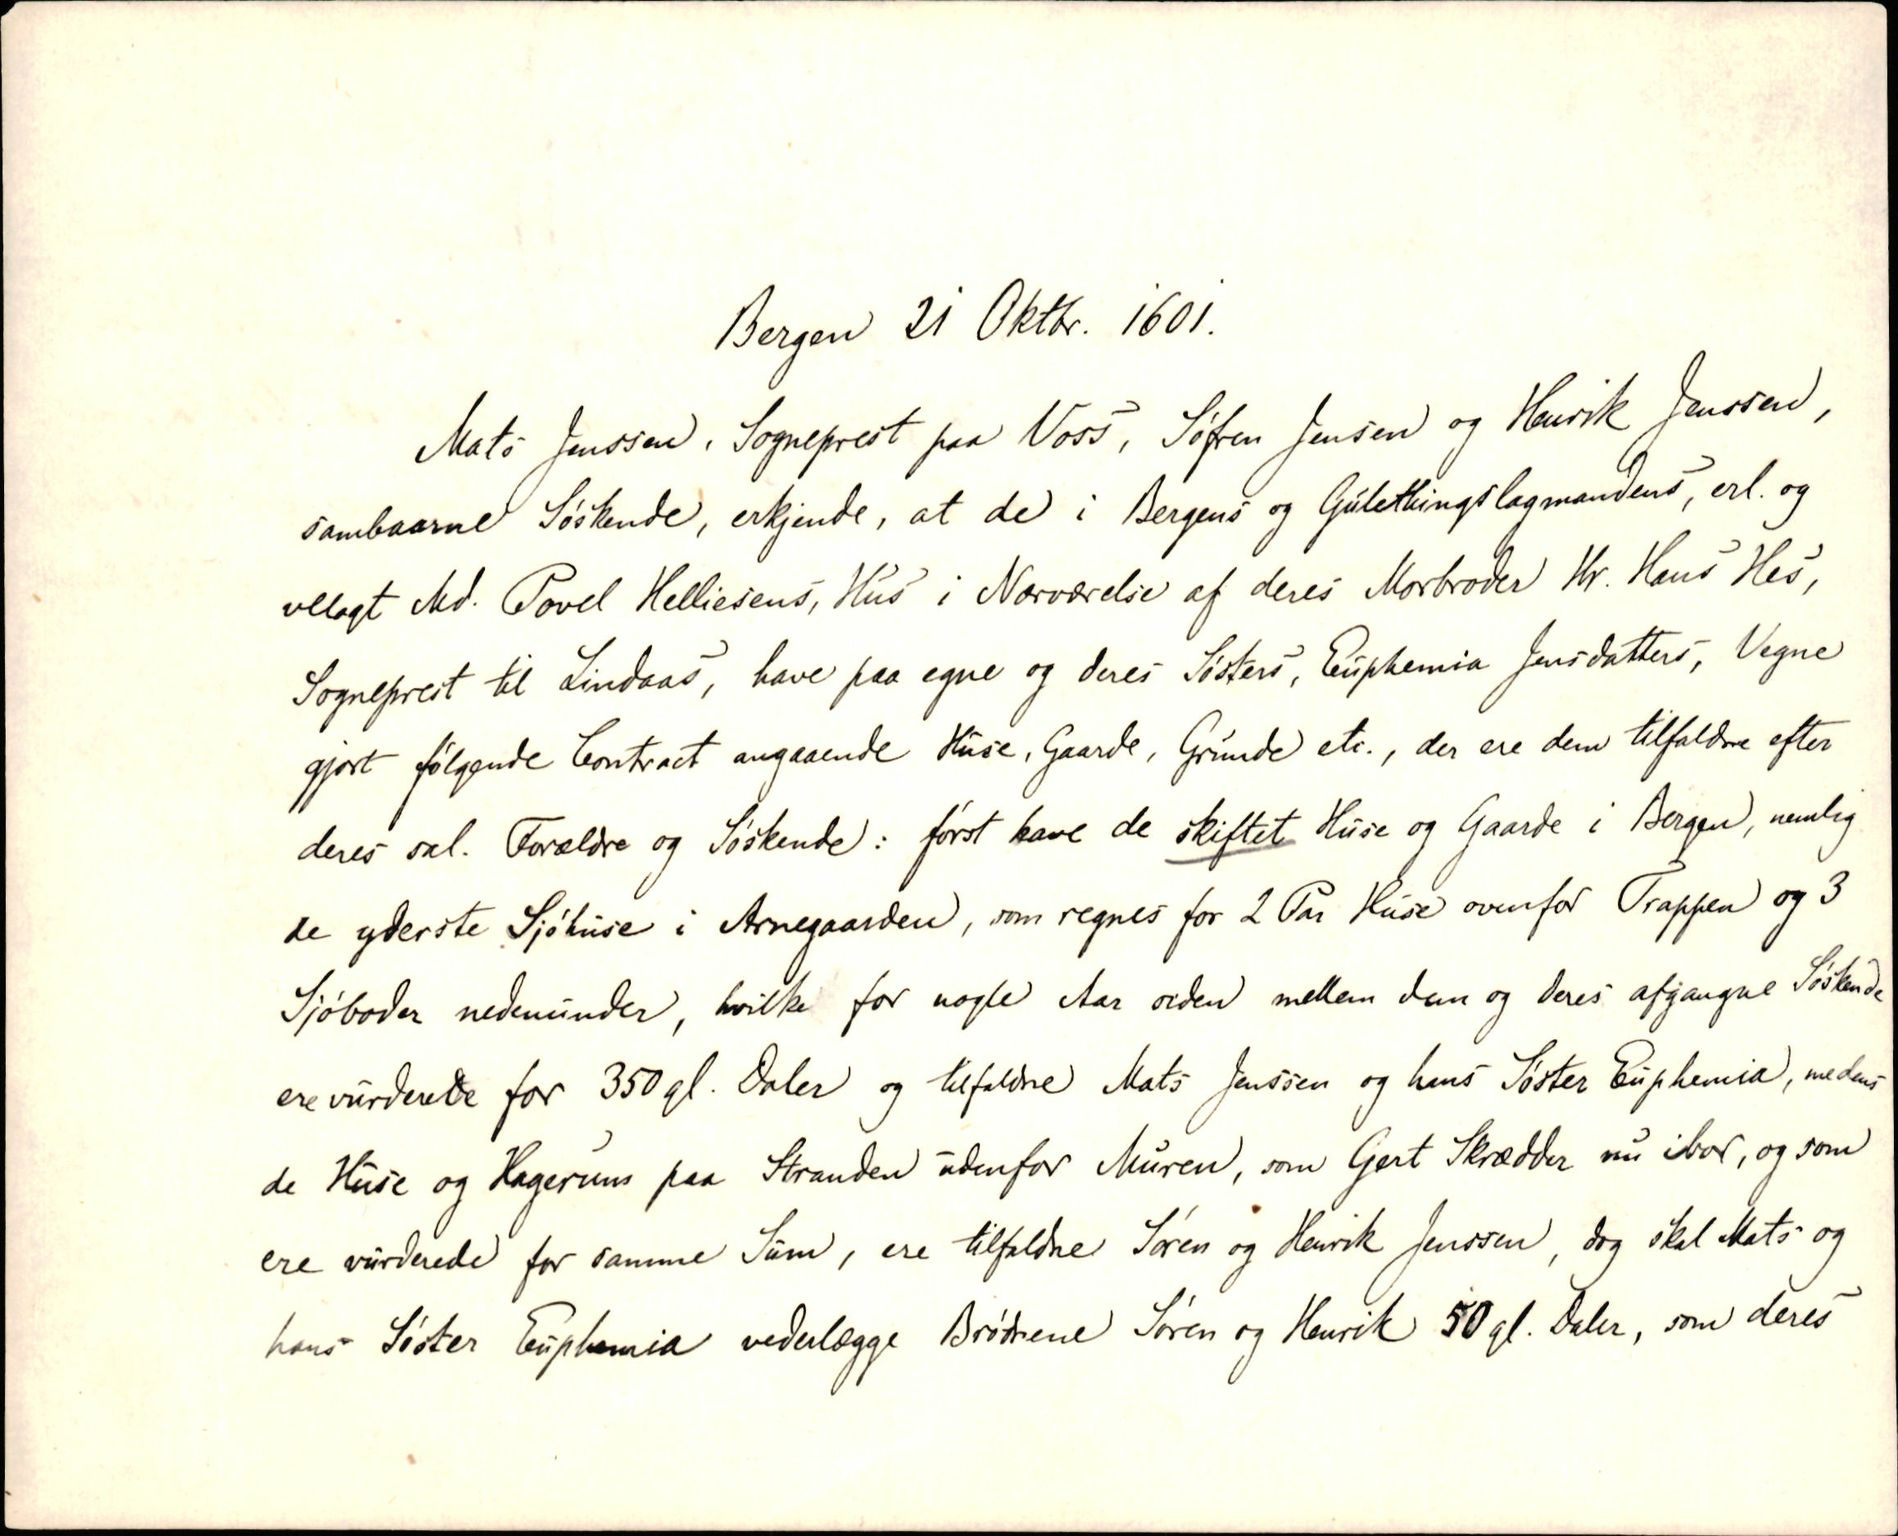 Bergen 21 Oktbr. 1601.
Mats Jenssen, Sogneprest paa Voss, Søfren Jensen og Henrik Jenssen,
sambaarne Søskende, erkjende, at de i Bergens og Gulethingslagmandens, erl. og
vellagt Md. Povel Helliesens, Hus i Nærværelse af deres Morbroder Hr. Hans Hes,
Sogneprest til Lindaas, have paa egne og deres Søsters, Euphemia Jensdatters, Vegne
gjort følgende Contract angaaende Huse, Gaarde, Grunde etc., der ere dem tilfaldne efter
deres sal. Forældre og Søskende: først have de skiftet Huse og Gaarde i Bergen, nemlig
de yderste Sjøhuse i Arnegaarden, som regnes for 2 Par Huse ovenfor Trappen og 3
Sjøboder nedenunder, hvilke for nogle Aar siden mellem dem og deres afgangne Søskende
ere vurderede for 350 gl. Daler og tilfaldne Mats Jenssen og hans Søster Euphemia, medens
de Huse og Hagerum paa Stranden udenfor Muren, som Gert Skrædder nu ibor, og som
ere vurderede for samme Sum, ere tilfaldne Søren og Henrik Jenssen, dog skal Mats og
hans Søster Euphemia vederlægge Brødrene Søren og Henrik 50 gl. Daler, som deres